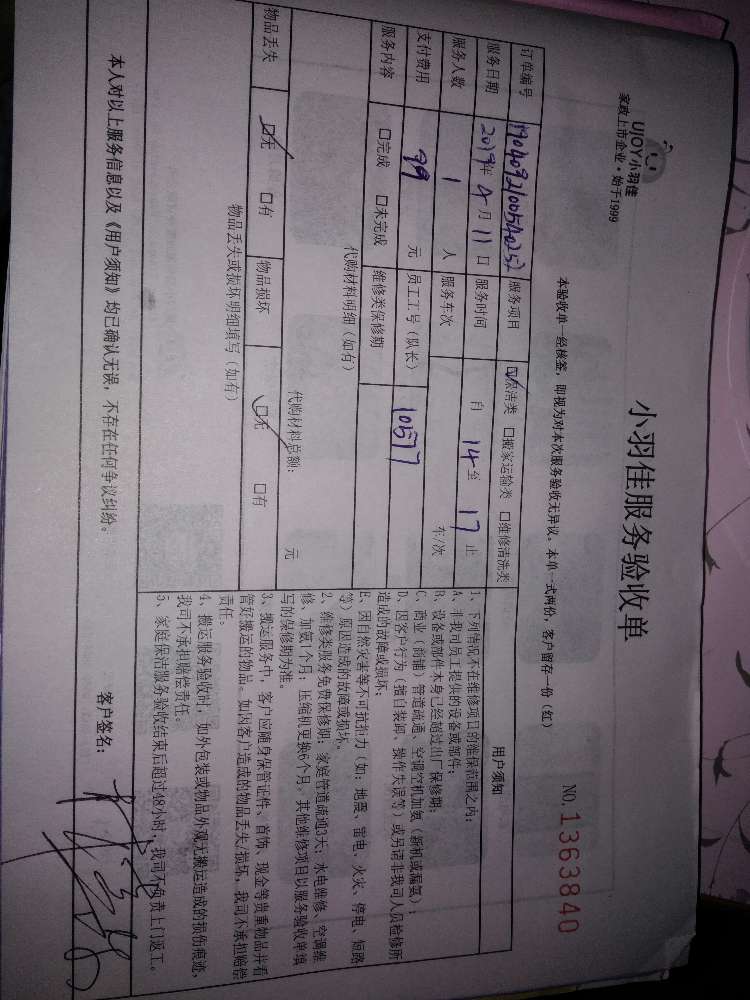 UJOY小羽佳
家政上市企业·始于1999
小羽佳服务验收单
本验收单一经核签，即视为对本次服务验收无异议。本单一式两份，客户留存一份（红）
NO. 1363840
订单编号 1904092100540252 服务项目 ☑保洁类 □搬家运输类 □维修清洗类
服务日期 2019年 4月 11日 服务时间 自 14 至 17 止
服务人数 1 人 服务车次 车/次
支付费用 99 元 员工工号（队长） 10577
服务内容 □完成 □未完成 维修类保修期
代购材料明细（如有）
代购材料总额： 元
物品丢失 ☑无 □有 物品损坏 ☑无 □有
物品丢失或损坏明细填写（如有）
用户须知
1、下列情况不在维修项目的维保范围之内：
A、非我司员工提供的设备或部件；
B、设备或部件本身已经超过出厂保修期；
C、商业（商铺）管道疏通、空调空机加氨（新机或漏氨）；
D、因客户行为（擅自装卸、操作失误等）或另请非我司人员检修所
造成的故障或损坏；
E、因自然灾害等不可抗拒力（如：地震、雷电、火灾、停电、短路
等）原因造成的故障或损坏。
2、维修类服务免费保修期：家庭管道疏通3天；水电维修、空调维
修、加氨1个月；压缩机更换6个月。其他维修项目以服务验收单填
写的保修期为准。
3、搬运服务中，客户应随身保管证件、首饰、现金等贵重物品并看
管好搬运的物品。如因客户造成的物品丢失/损坏，我司不承担赔偿
责任。
4、搬运服务验收时，如外包装或物品外观无搬运造成的损伤痕迹，
我司不承担赔偿责任。
5、家庭保洁服务验收结束后超过48小时，我司不负责上门返工。
本人对以上服务信息以及《用户须知》均已确认无误，不存在任何争议纠纷。 客户签名：